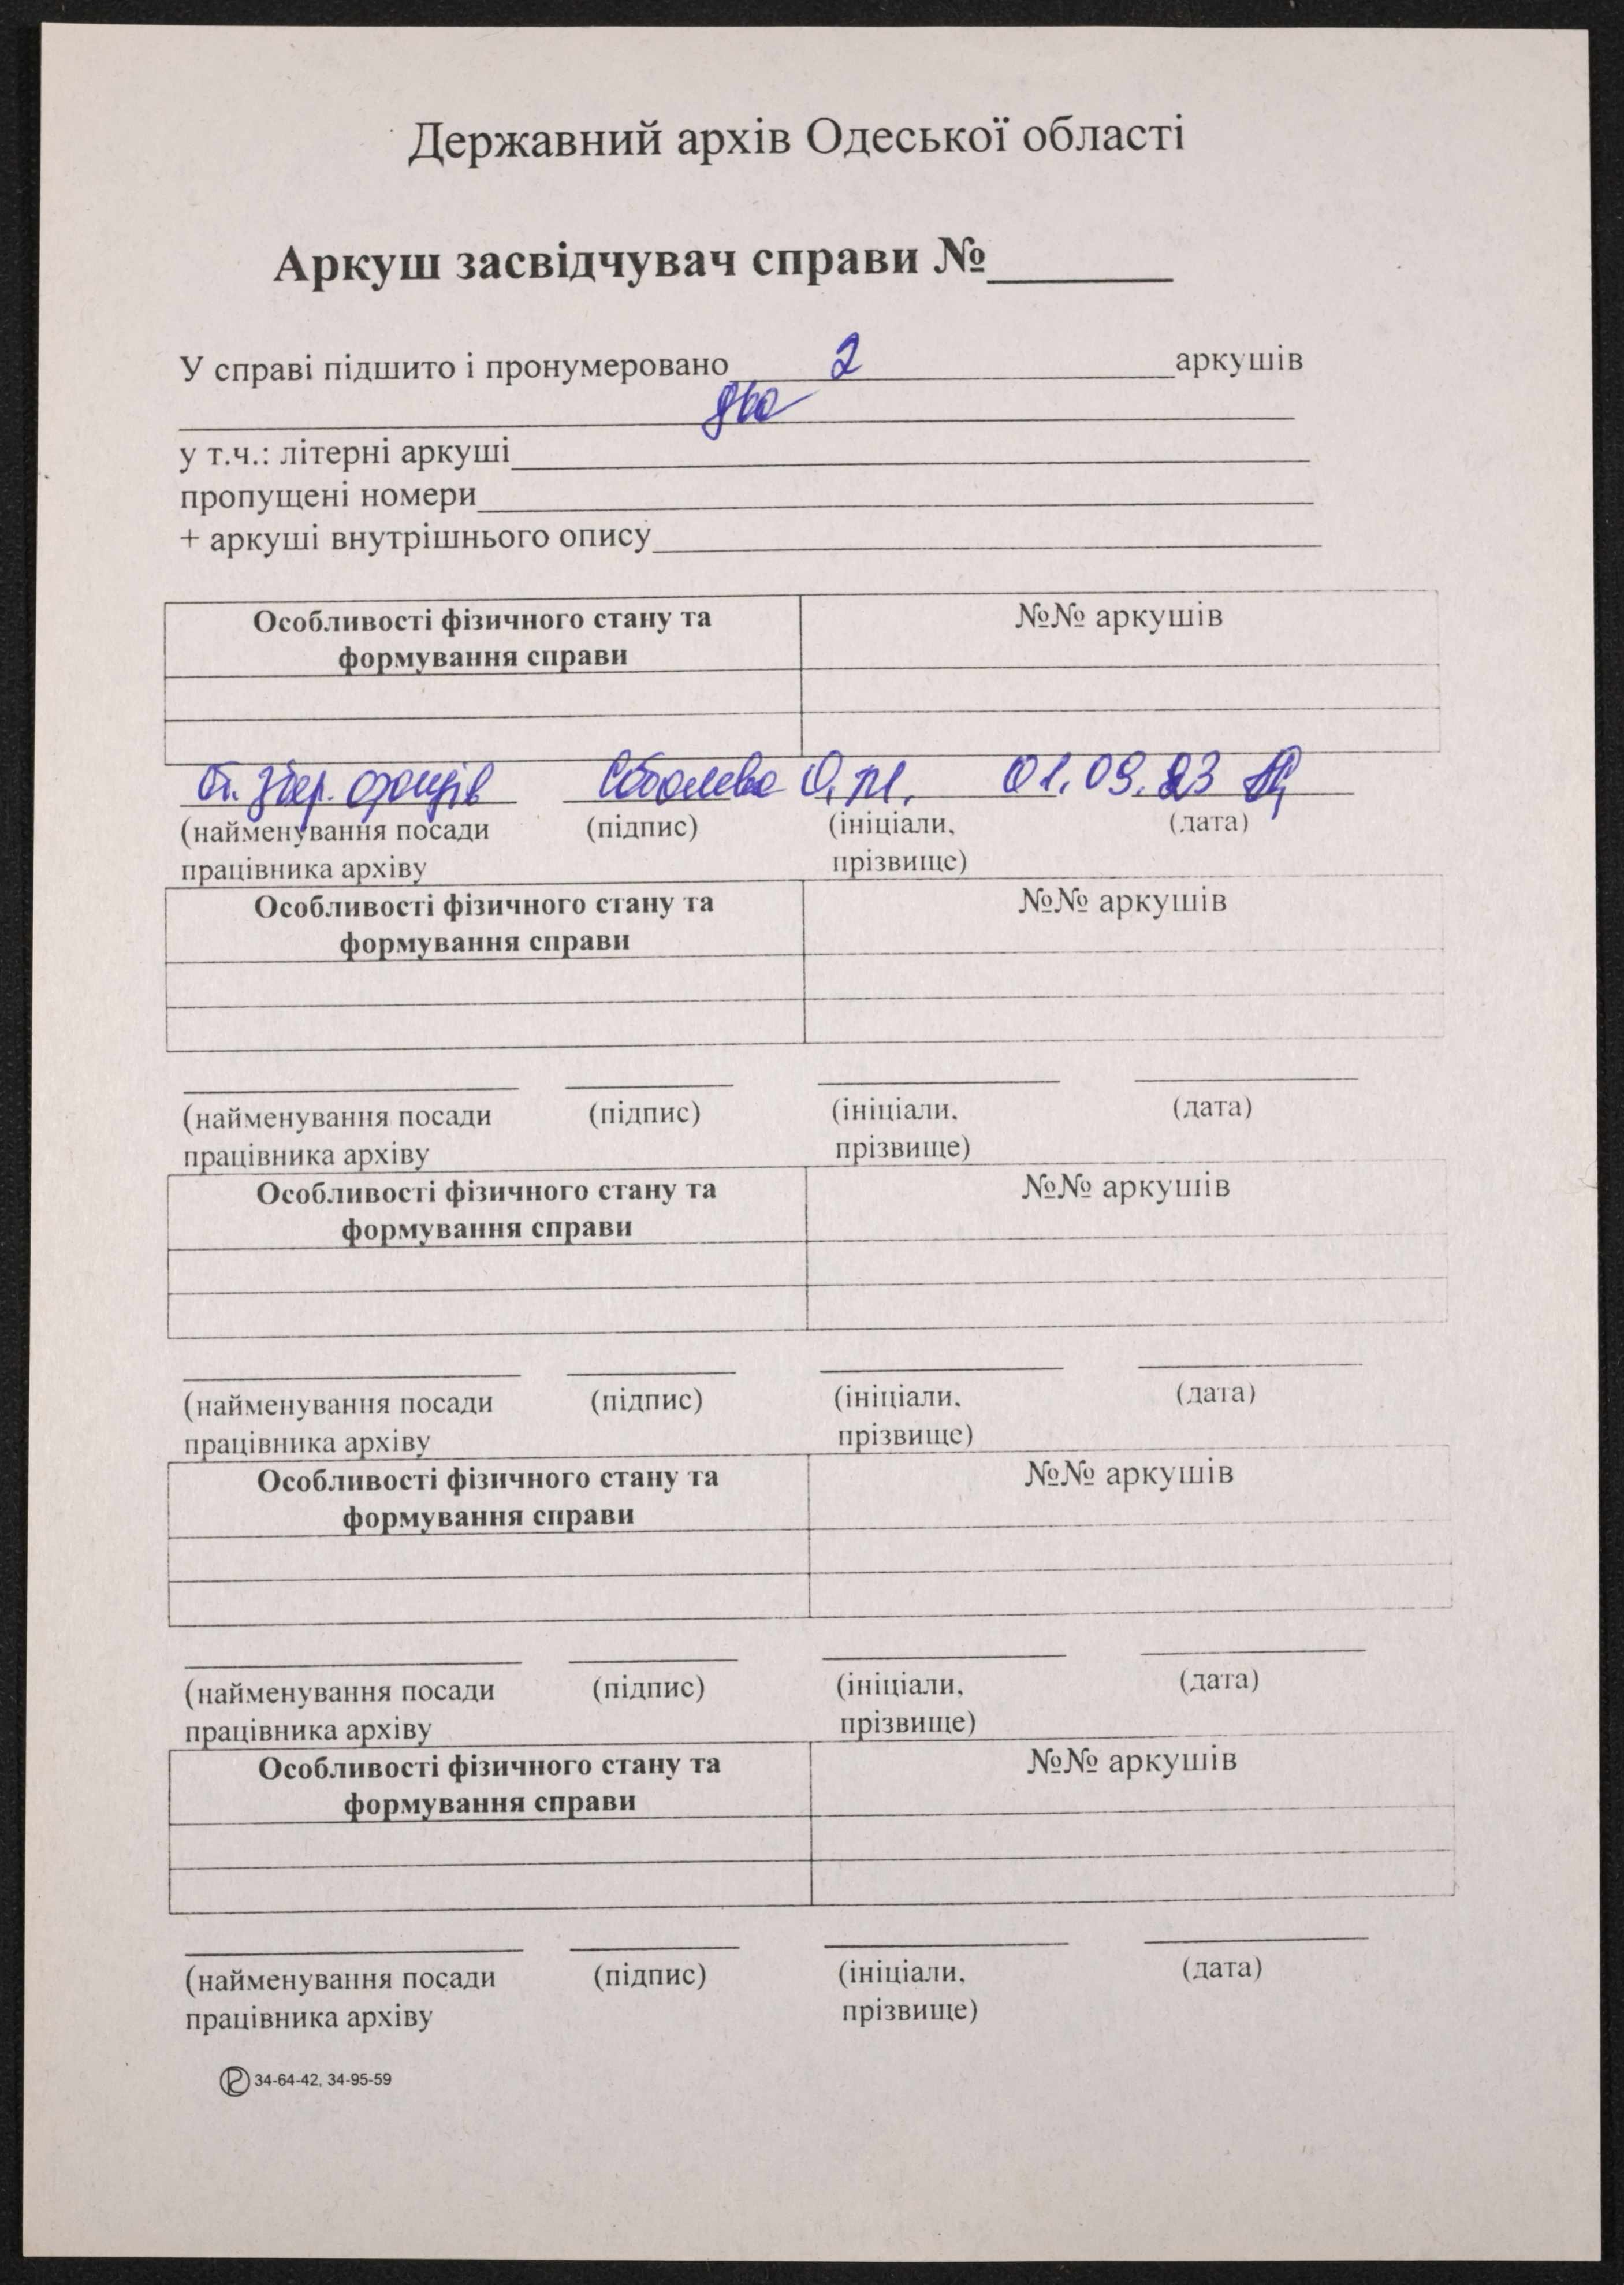 Державний архів Одеської області
Аркуш засвідчувач справи №_______
У справі підшито і пронумеровано 2 аркушів
два
у т.ч.: літерні аркуші
пропущені номери
+ аркуші внутрішнього опису
Особливості фізичного стану та №№ аркушів
формування справи
збер. фондів Соболева О.М. 01.09.23
(найменування посади (підпис) (ініціали, (дата)
працівника архіву прізвище)
Особливості фізичного стану та №№ аркушів
формування справи
(найменування посади (підпис) (ініціали, (дата)
працівника архіву прізвище)
Особливості фізичного стану та №№ аркушів
формування справи
(найменування посади (підпис) (ініціали, (дата)
працівника архіву прізвище)
Особливості фізичного стану та №№ аркушів
формування справи
(найменування посади (підпис) (ініціали, (дата)
працівника архіву прізвище)
Особливості фізичного стану та №№ аркушів
формування справи
(найменування посади (підпис) (ініціали, (дата)
працівника архіву прізвище)
34-64-42, 34-95-59